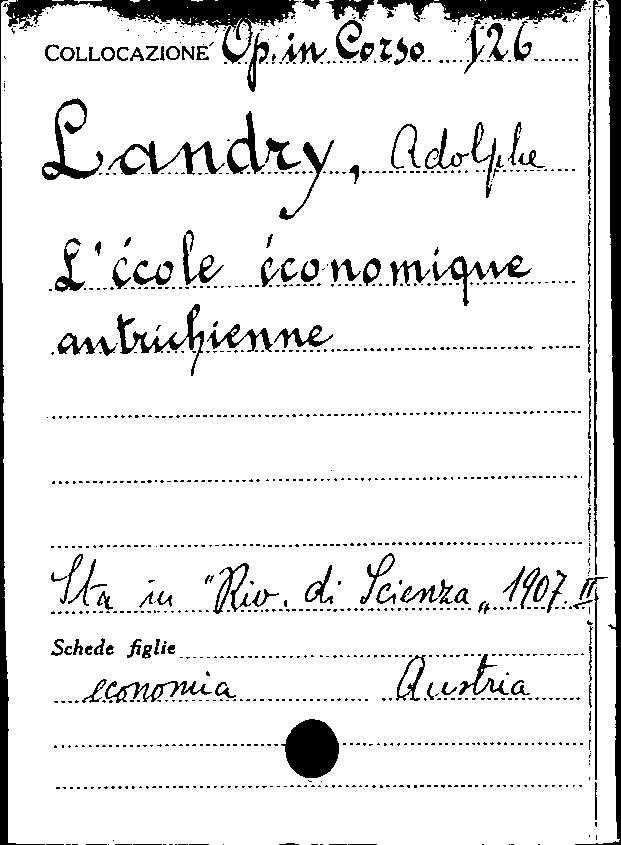 COLLOCAZIONE Op. in Corso 126
Landry, Adolphe
L'école économique
autrichienne
Sta in "Riv. di Scienza„ 1907. II
Schede figlie
economia Austria